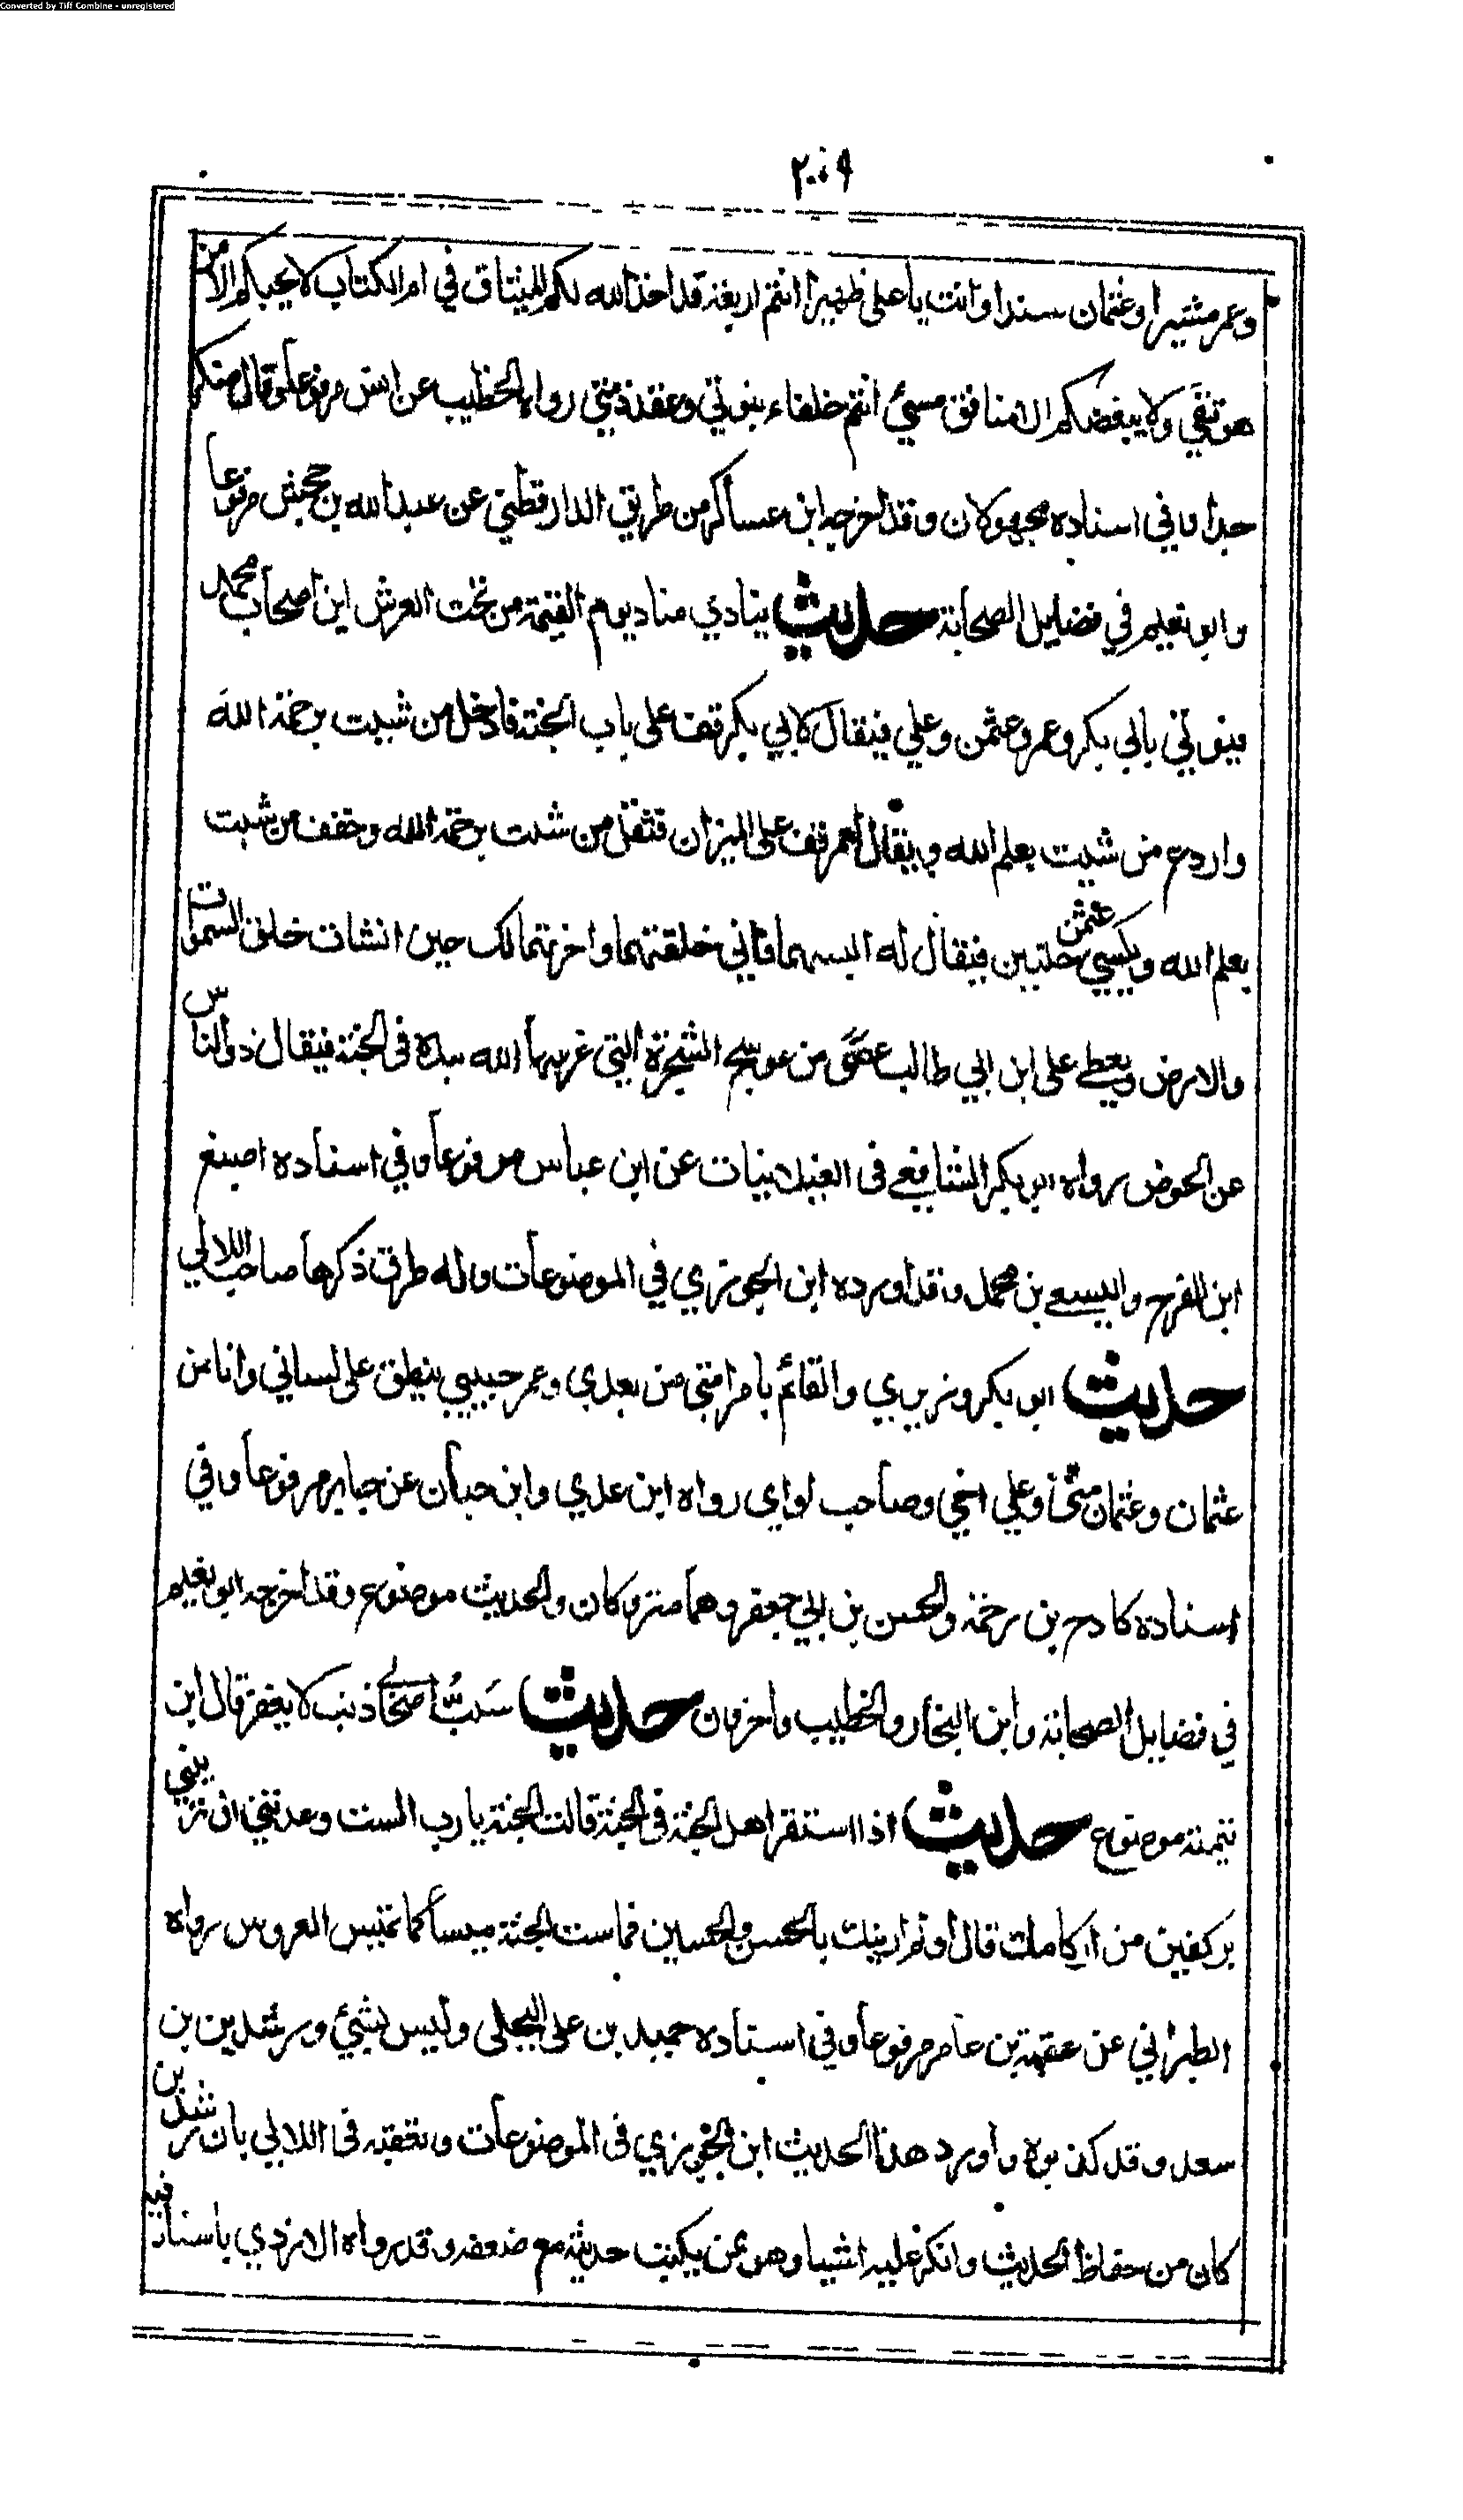 Converted by Tiff Combine - unregistered
٢٠٩
وعمر مشيرا وعثمان سندا وانت يا علي ظهيرا انتم اربعة قد اخذ الله لكم الميثاق في ام الكتاب لا يحبكم الا من
هو تقي ولا يبغضكم الا منافق مسيئ انتم خلفاء نبوتي وعقد ذمتي رواه الخطيب عن انس مرفوعا وقال منكر
جدا وفي اسناده مجهولان وقد اخرجه ابن عساكر من طريق الدارقطني عن عبد الله بن جحش مرفوعا
وابو نعيم في فضايل الصحابة حديث ينادي مناد يوم القيمة من تحت العرش اين اصحاب محمد
فيؤتي بابي بكر وعمر وعثمن وعلي فيقال لابي بكر قف على باب الجنة فادخل من شيت برحمة الله
واردع من شيت بعلم الله ويقال لعمر قف على الميزان فثقل من شيت برحمة الله وخفف من شيت
بعلم الله ويكسي عثمن حلتين فيقال له البسهما فاني خلقتهما واخرتهما لك حين انشات خلق السموات
والارض ويعطى على ابن ابي طالب عصى من عوسج الشجرة التي غرسها الله بيده في الجنة فيقال ذد الناس
عن الحوض رواه ابو بكر الشافعي في الغيلانيات عن ابن عباس مرفوعا وفي اسناده اصبغ
ابن الفرج واليسع بن محمد وقد اورده ابن الجوزي في الموضوعات وله طرق ذكرها صاحب اللالي
حديث ابو بكر وزيري والقائم بامر امتي من بعدي وعمر حبيبي ينطق على لساني وانا من
عثمان وعثمان مني وعلي اخي وصاحب لواي رواه ابن عدي وابن حبان عن جابر مرفوعا وفي
اسناده كادح بن رحمة والحسن بن ابي جعفر وهما متروكان والحديث موضوع وقد اخرجه ابو نعيم
في فضايل الصحابة وابن النجار والخطيب واخرون حديث سَبُّ اصحابي ذنب لا يغفر قال ابن
تيمية موضوع حديث اذا استقر اهل الجنة في الجنة قالت الجنة يا رب الست وعدتني ان تزينني
بركفين من اركانك قال اولم ازينك بالحسن والحسين فماست الجنة ميسا كما تميس العروس رواه
الطبراني عن عقبة بن عامر مرفوعا وفي اسناده حميد بن على البجلى وليس بشيئ ورشدين بن
سعد وقد كذبوه واورد هذا الحديث ابن الجوزي في الموضوعات وتعقبه في اللالي بان رشدين
كان من حفاظ الحديث وانكر عليه اشيا وهو ممن يكتب حديثه مع ضعفه وقد رواه الازدي باسناد فيه